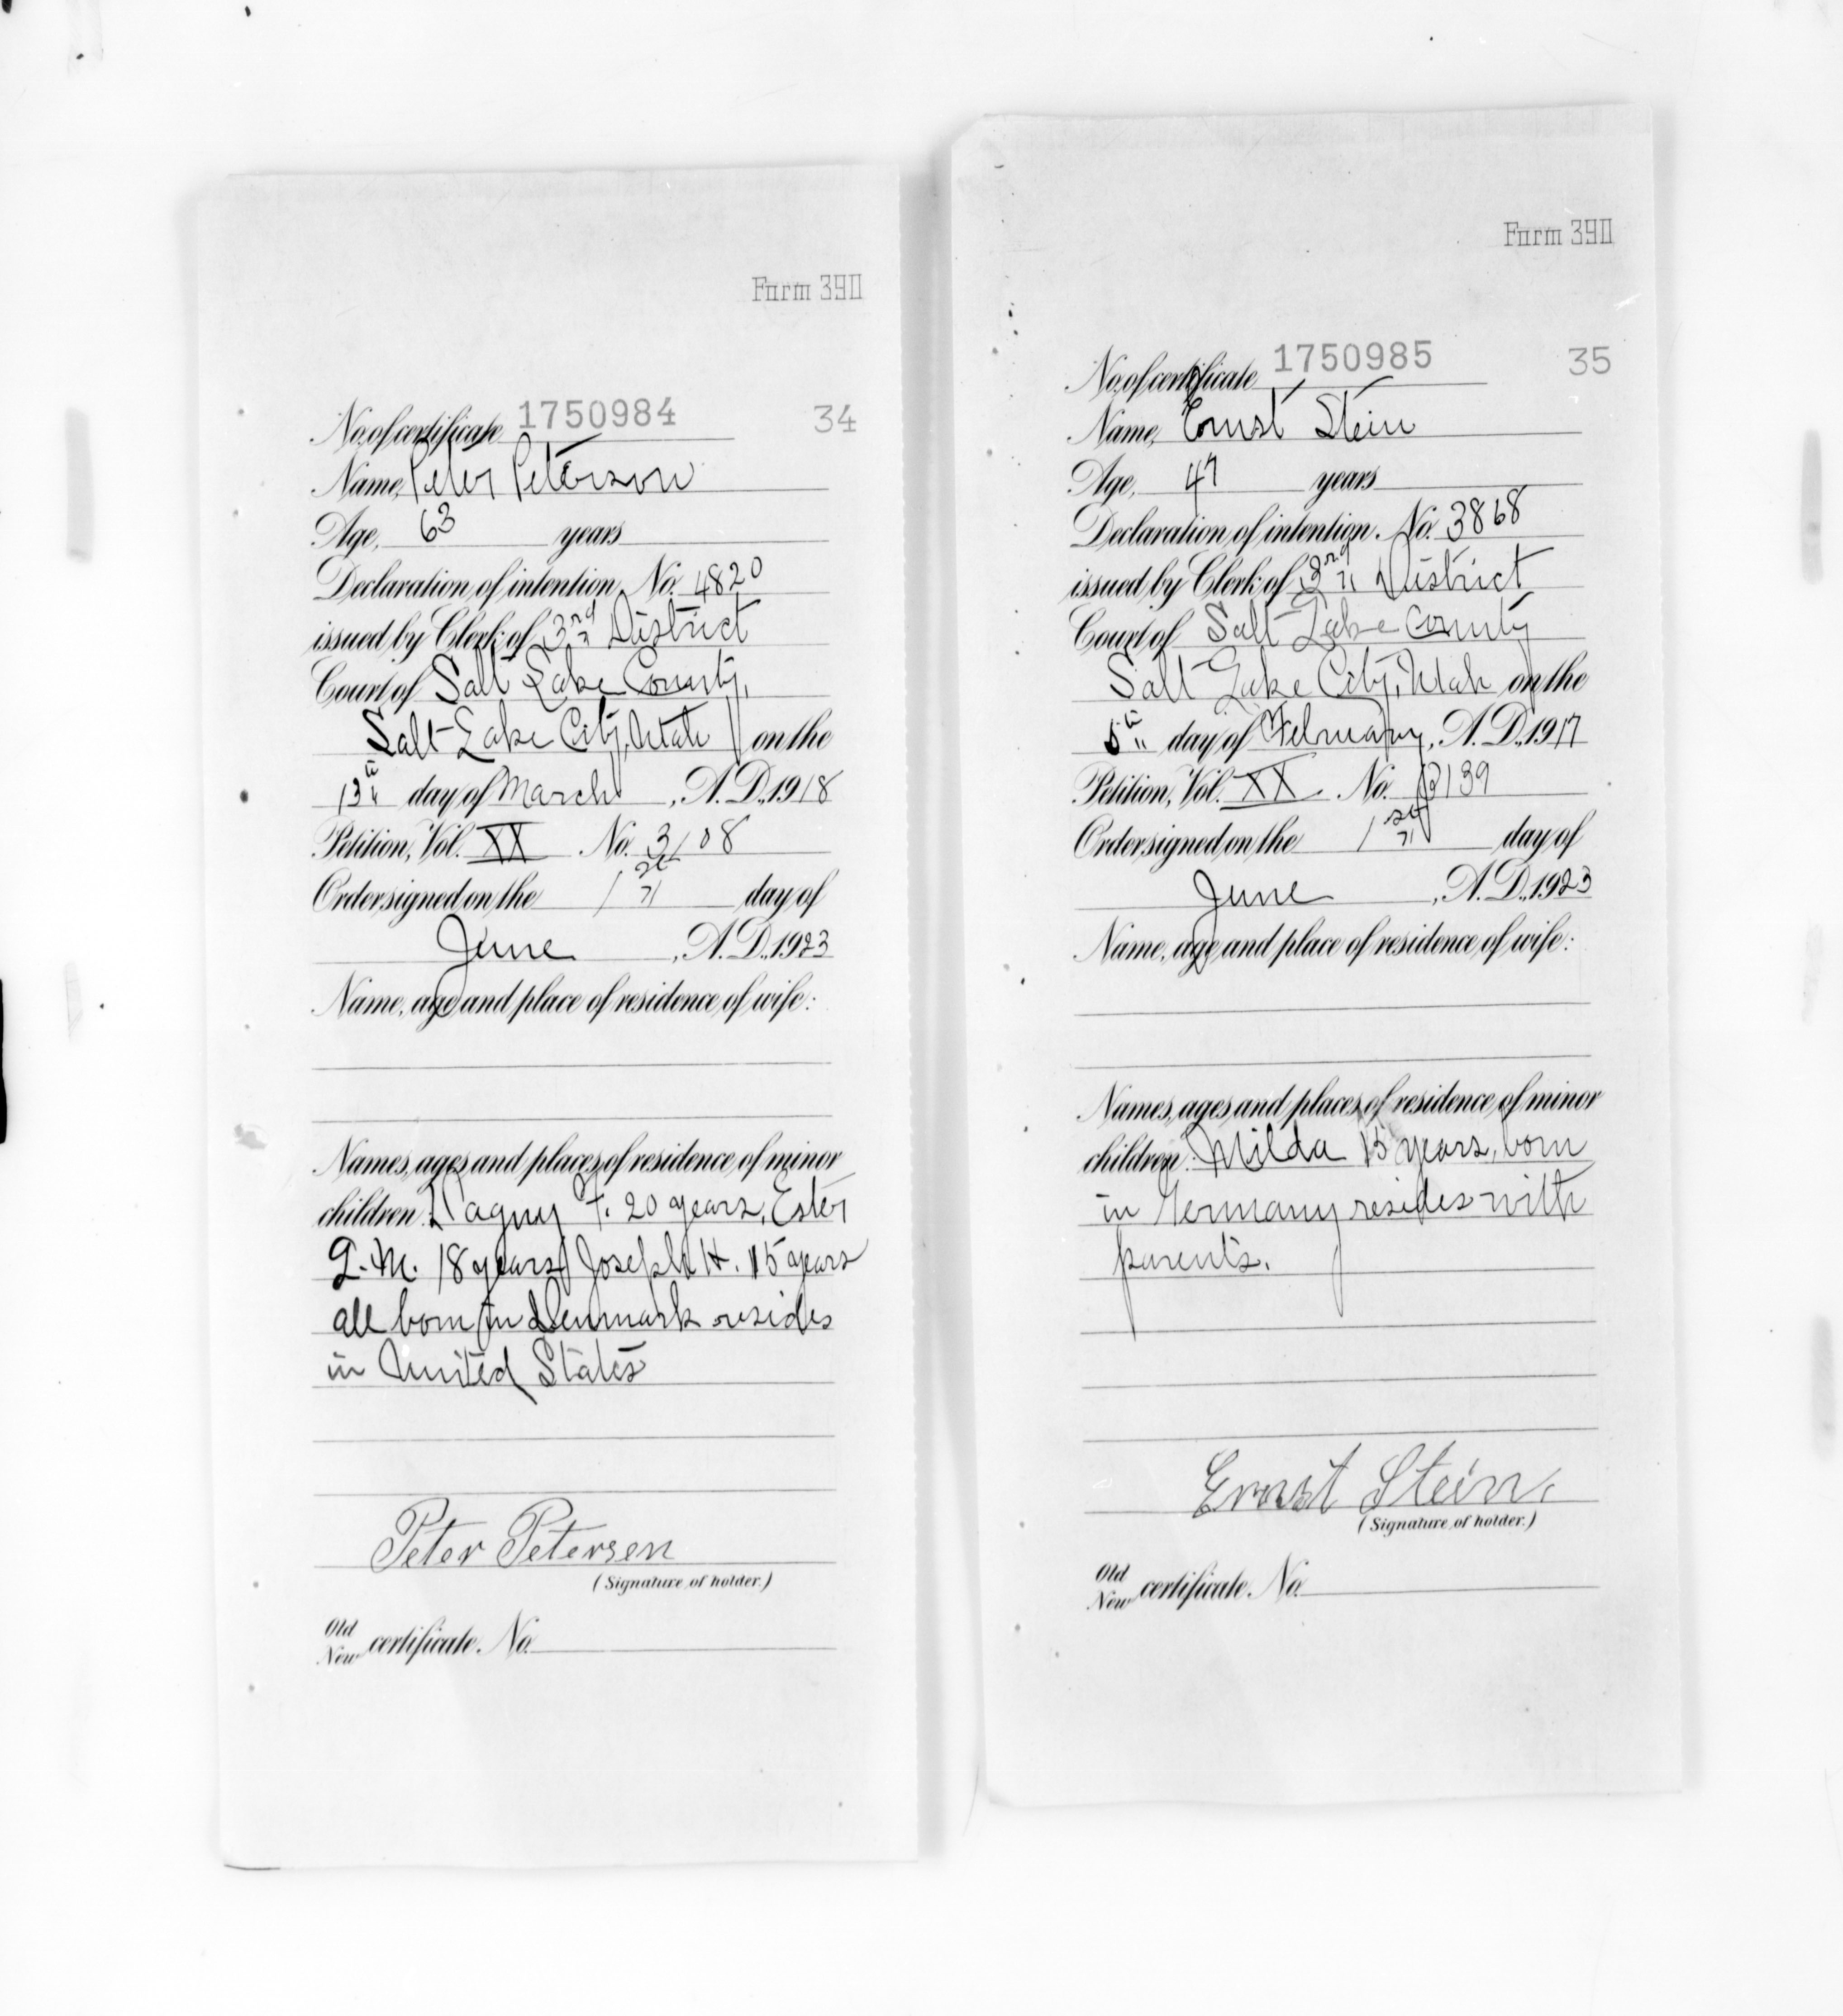 Form 390
No. of certificate 1750984 34
Name, Peter Peterson
Age, 63 years
Declaration of intention, No. 4820
issued by Clerk of 3rd District
Court of Salt Lake County,
Salt Lake City, Utah on the
13th day of March, A. D., 1918
Petition, Vol. XX No. 3108
Order signed on the 1st day of
June, A. D., 1923
Name, age and place of residence of wife:
Names, ages and places of residence of minor
children: Dagny F. 20 years, Ester
L. M. 18 years, Joseph H. 15 years
all born in Denmark resides
in United States
Peter Petersen
(Signature of holder.)
Old
New certificate No.
Form 390
No. of certificate 1750985 35
Name, Ernst Stein
Age, 47 years
Declaration of intention, No. 3868
issued by Clerk of 3rd District
Court of Salt Lake County
Salt Lake City, Utah on the
5th day of February, A. D., 1917
Petition, Vol. XX No. 3139
Order signed on the 1st day of
June, A. D., 1923
Name, age and place of residence of wife:
Names, ages and places of residence of minor
children: Milda 15 years, born
in Germany resides with
parents.
Ernst Stein.
(Signature of holder.)
Old
New certificate No.